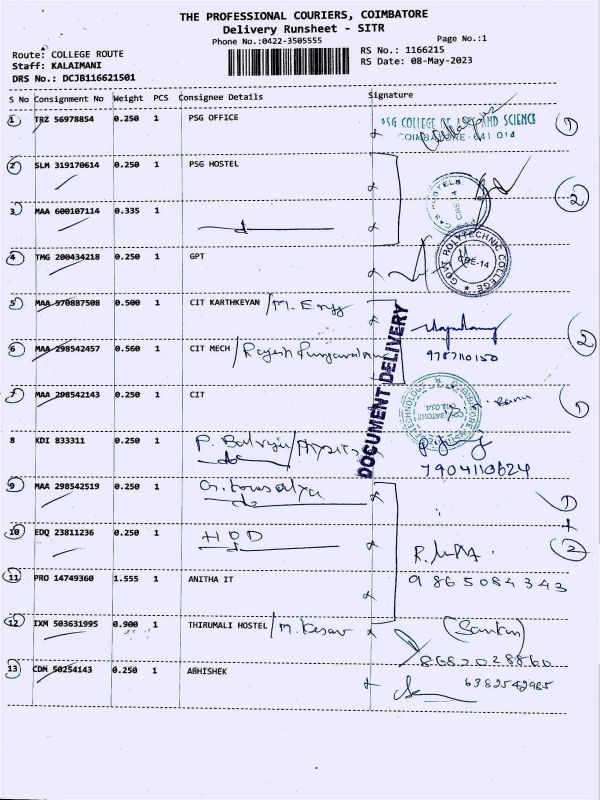 THE PROFESSIONAL COURIERS, COIMBATORE
Delivery Runsheet - SITR
Phone No.:0422-3505555 Page No.:1
Route: COLLEGE ROUTE RS No.: 1166215
Staff: KALAIMANI RS Date: 08-May-2023
DRS No.: DCJB116621501
S No Consignment No Weight PCS Consignee Details Signature
1 TRZ 56978854 0.250 1 PSG OFFICE
PSG COLLEGE OF ARTS AND SCIENCE 1
COIMBATORE - 641 014
2 SLM 319170614 0.250 1 PSG HOSTEL
2
3 MAA 600107114 0.335 1
4 TMG 200434218 0.250 1 GPT
GOVT POLYTECHNIC COLLEGE CBE-14
5 MAA 570887508 0.500 1 CIT KARTHKEYAN /M. Engg
DOCUMENT DELIVERY
2
6 MAA 298542457 0.560 1 CIT MECH / Rajesh
9787110150
7 MAA 298542143 0.250 1 CIT
1
8 KDI 833311 0.250 1 P. /Physics
7904110624
9 MAA 298542519 0.250 1
1
+
2
10 EDQ 23811236 0.250 1 HOD
11 PRO 14749360 1.555 1 ANITHA IT
9865084343
12 IXM 503631995 0.900 1 THIRUMALI HOSTEL / M. Kesav
8682028860
13 CDM 50254143 0.250 1 ABHISHEK
6382542985